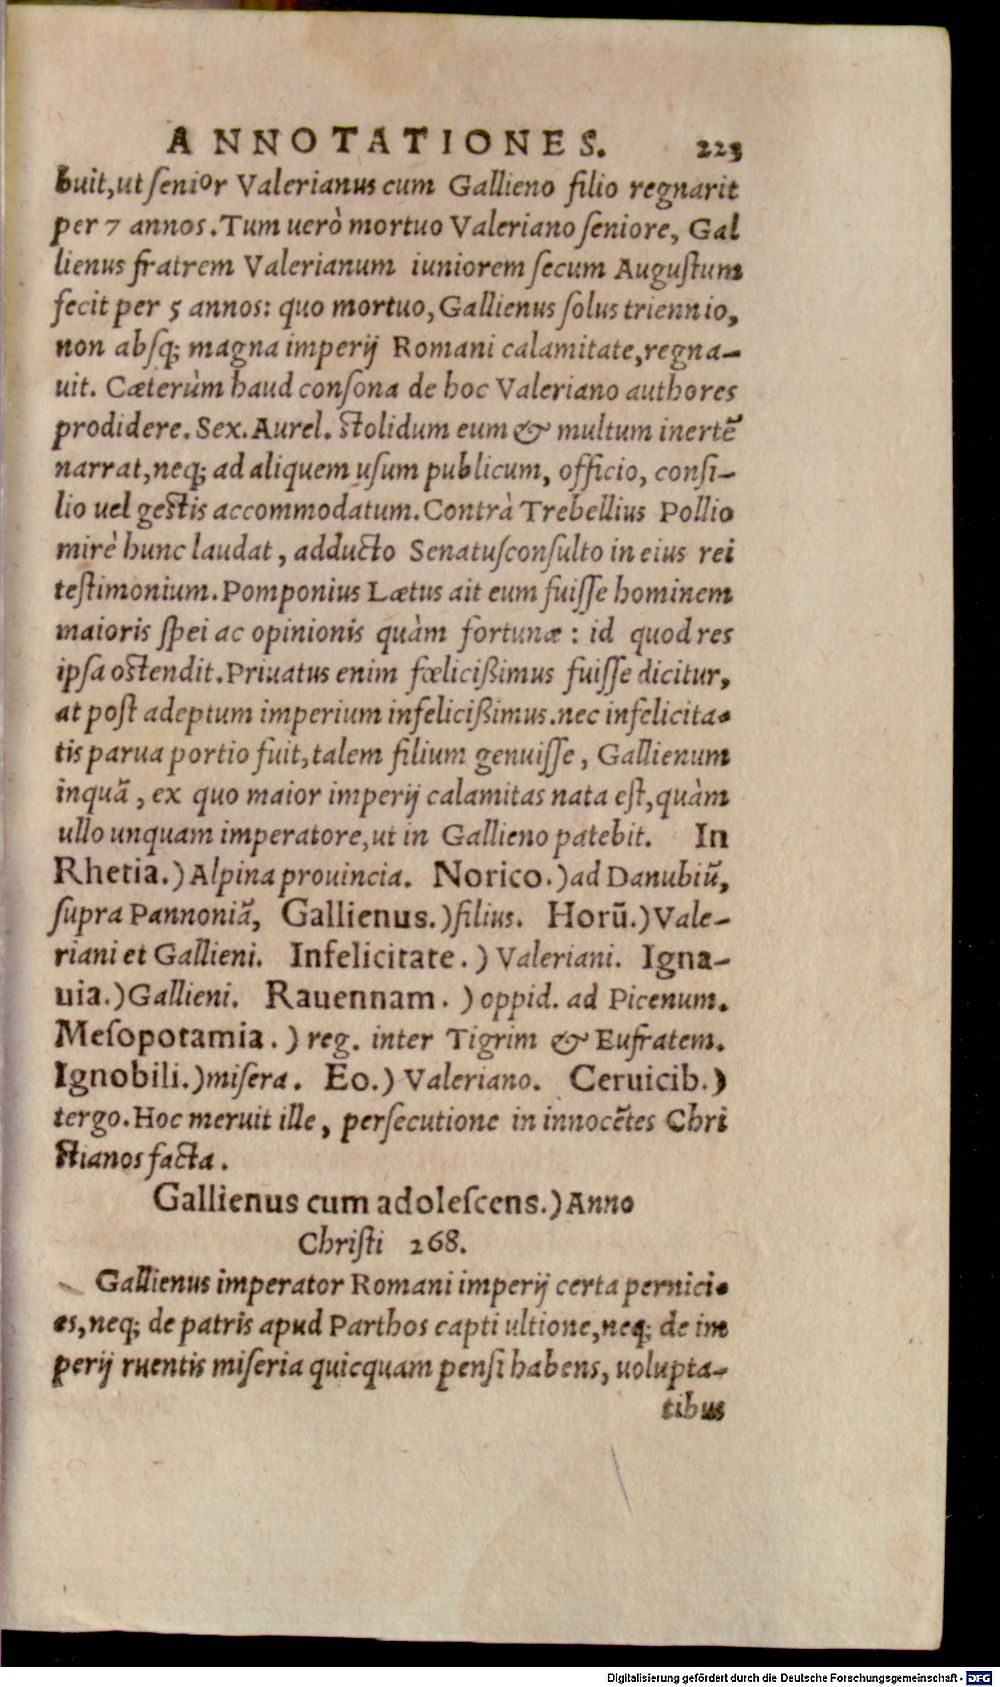 ANNOTATIONES. 223
buit, ut ſenior Valerianus cum Gallieno filio regnarit
per 7 annos. Tum uerò mortuo Valeriano ſeniore, Gal
lienus fratrem Valerianum iuniorem ſecum Auguſtum
fecit per 5 annos: quo mortuo, Gallienus ſolus triennio,
non abſq; magna imperij Romani calamitate, regna-
uit. Cæterùm haud conſona de hoc Valeriano authores
prodidere. Sex. Aurel. ſtolidum eum & multum inertē
narrat, neq; ad aliquem uſum publicum, officio, conſi-
lio uel geſtis accommodatum. Contrà Trebellius Pollio
mirè hunc laudat, adducto Senatuſconſulto in eius rei
teſtimonium. Pomponius Lætus ait eum fuiſſe hominem
maioris ſpei ac opinionis quàm fortunæ: id quod res
ipſa oſtendit. Priuatus enim fœlicißimus fuiſſe dicitur,
at poſt adeptum imperium infelicißimus. nec infelicita-
tis parua portio fuit, talem filium genuiſſe, Gallienum
inquā, ex quo maior imperij calamitas nata eſt, quàm
ullo unquam imperatore, ut in Gallieno patebit. In
Rhetia.) Alpina prouincia. Norico.) ad Danubiū,
ſupra Pannoniā, Gallienus.) filius. Horū.) Vale-
riani et Gallieni. Infelicitate.) Valeriani. Igna-
uia.) Gallieni. Rauennam.) oppid. ad Picenum.
Meſopotamia.) reg. inter Tigrim & Eufratem.
Ignobili.) miſera. Eo.) Valeriano. Ceruicib.)
tergo. Hoc meruit ille, perſecutione in innocētes Chri
ſtianos facta.
Gallienus cum adoleſcens.) Anno
Chriſti 268.
Gallienus imperator Romani imperij certa pernici-
es, neq; de patris apud Parthos capti ultione, neq; de im
perij ruentis miſeria quicquam penſi habens, uolupta-
tibus
Digitalisierung gefördert durch die Deutsche Forschungsgemeinschaft - DFG